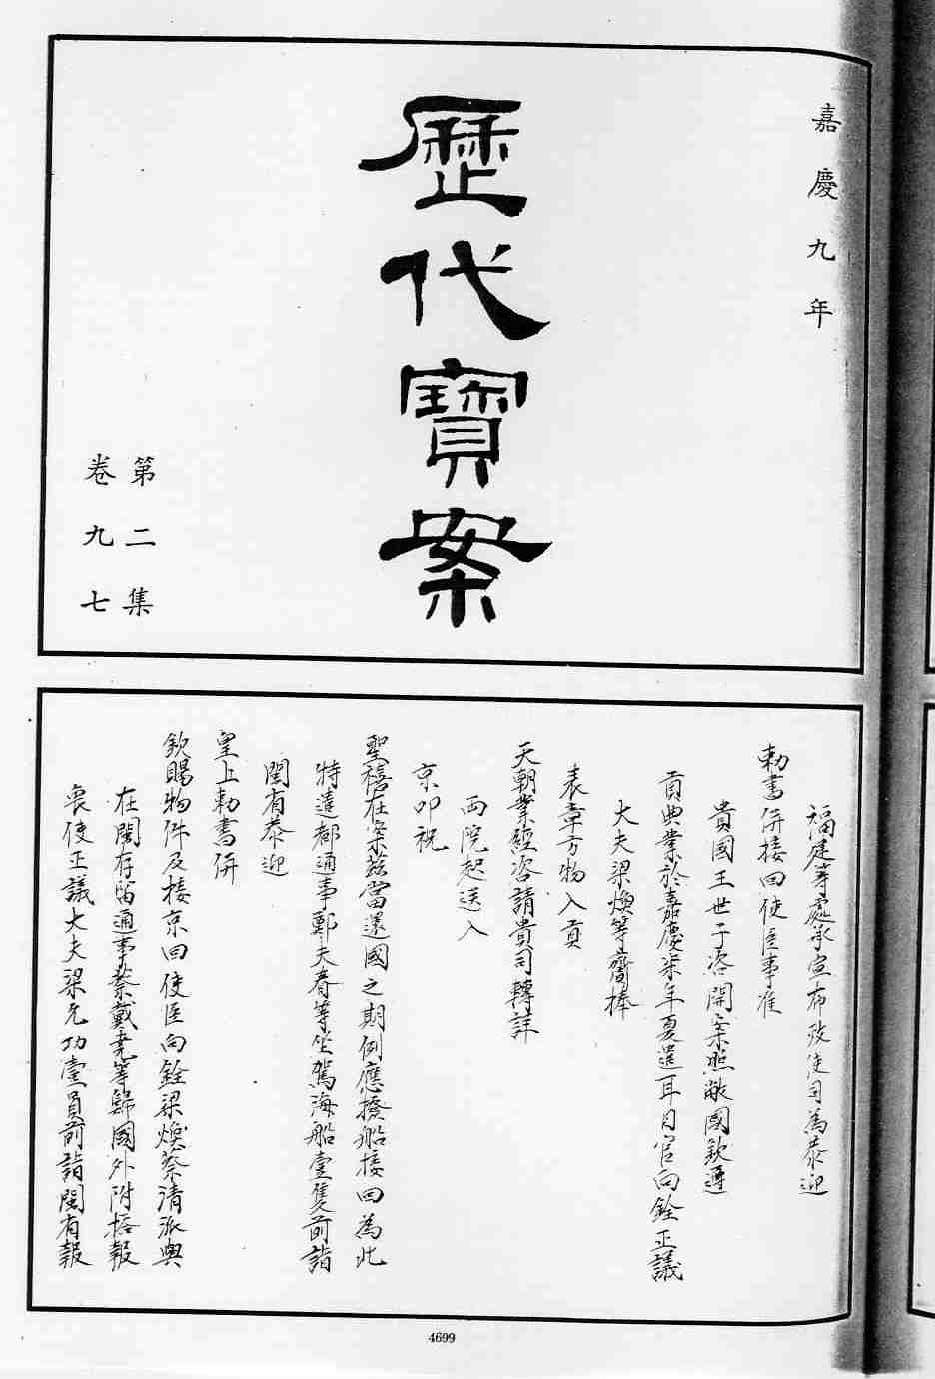 嘉慶九年
歷代寶案
第二集
卷九七
福建等處承宣布政使司為恭迎
勅書併接回使臣事准
貴國王世子咨開案照敝國欽遵
貢典業於嘉慶柒年夏遣耳目官向銓正議
大夫梁煥等齎捧
表章方物入貢
天朝業經咨請貴司轉詳
兩院起送入
京叩祝
聖禧在案茲當還國之期例應撥船接回為此
特遣都通事鄭天春等坐駕海船壹隻前詣
閩省恭迎
皇上勅書併
欽賜物件及接京回使臣向銓梁煥蔡清派與
在閩存留通事蔡戴堯等歸國外附搭報
喪使正議大夫梁允功壹員前詣閩省報
4699